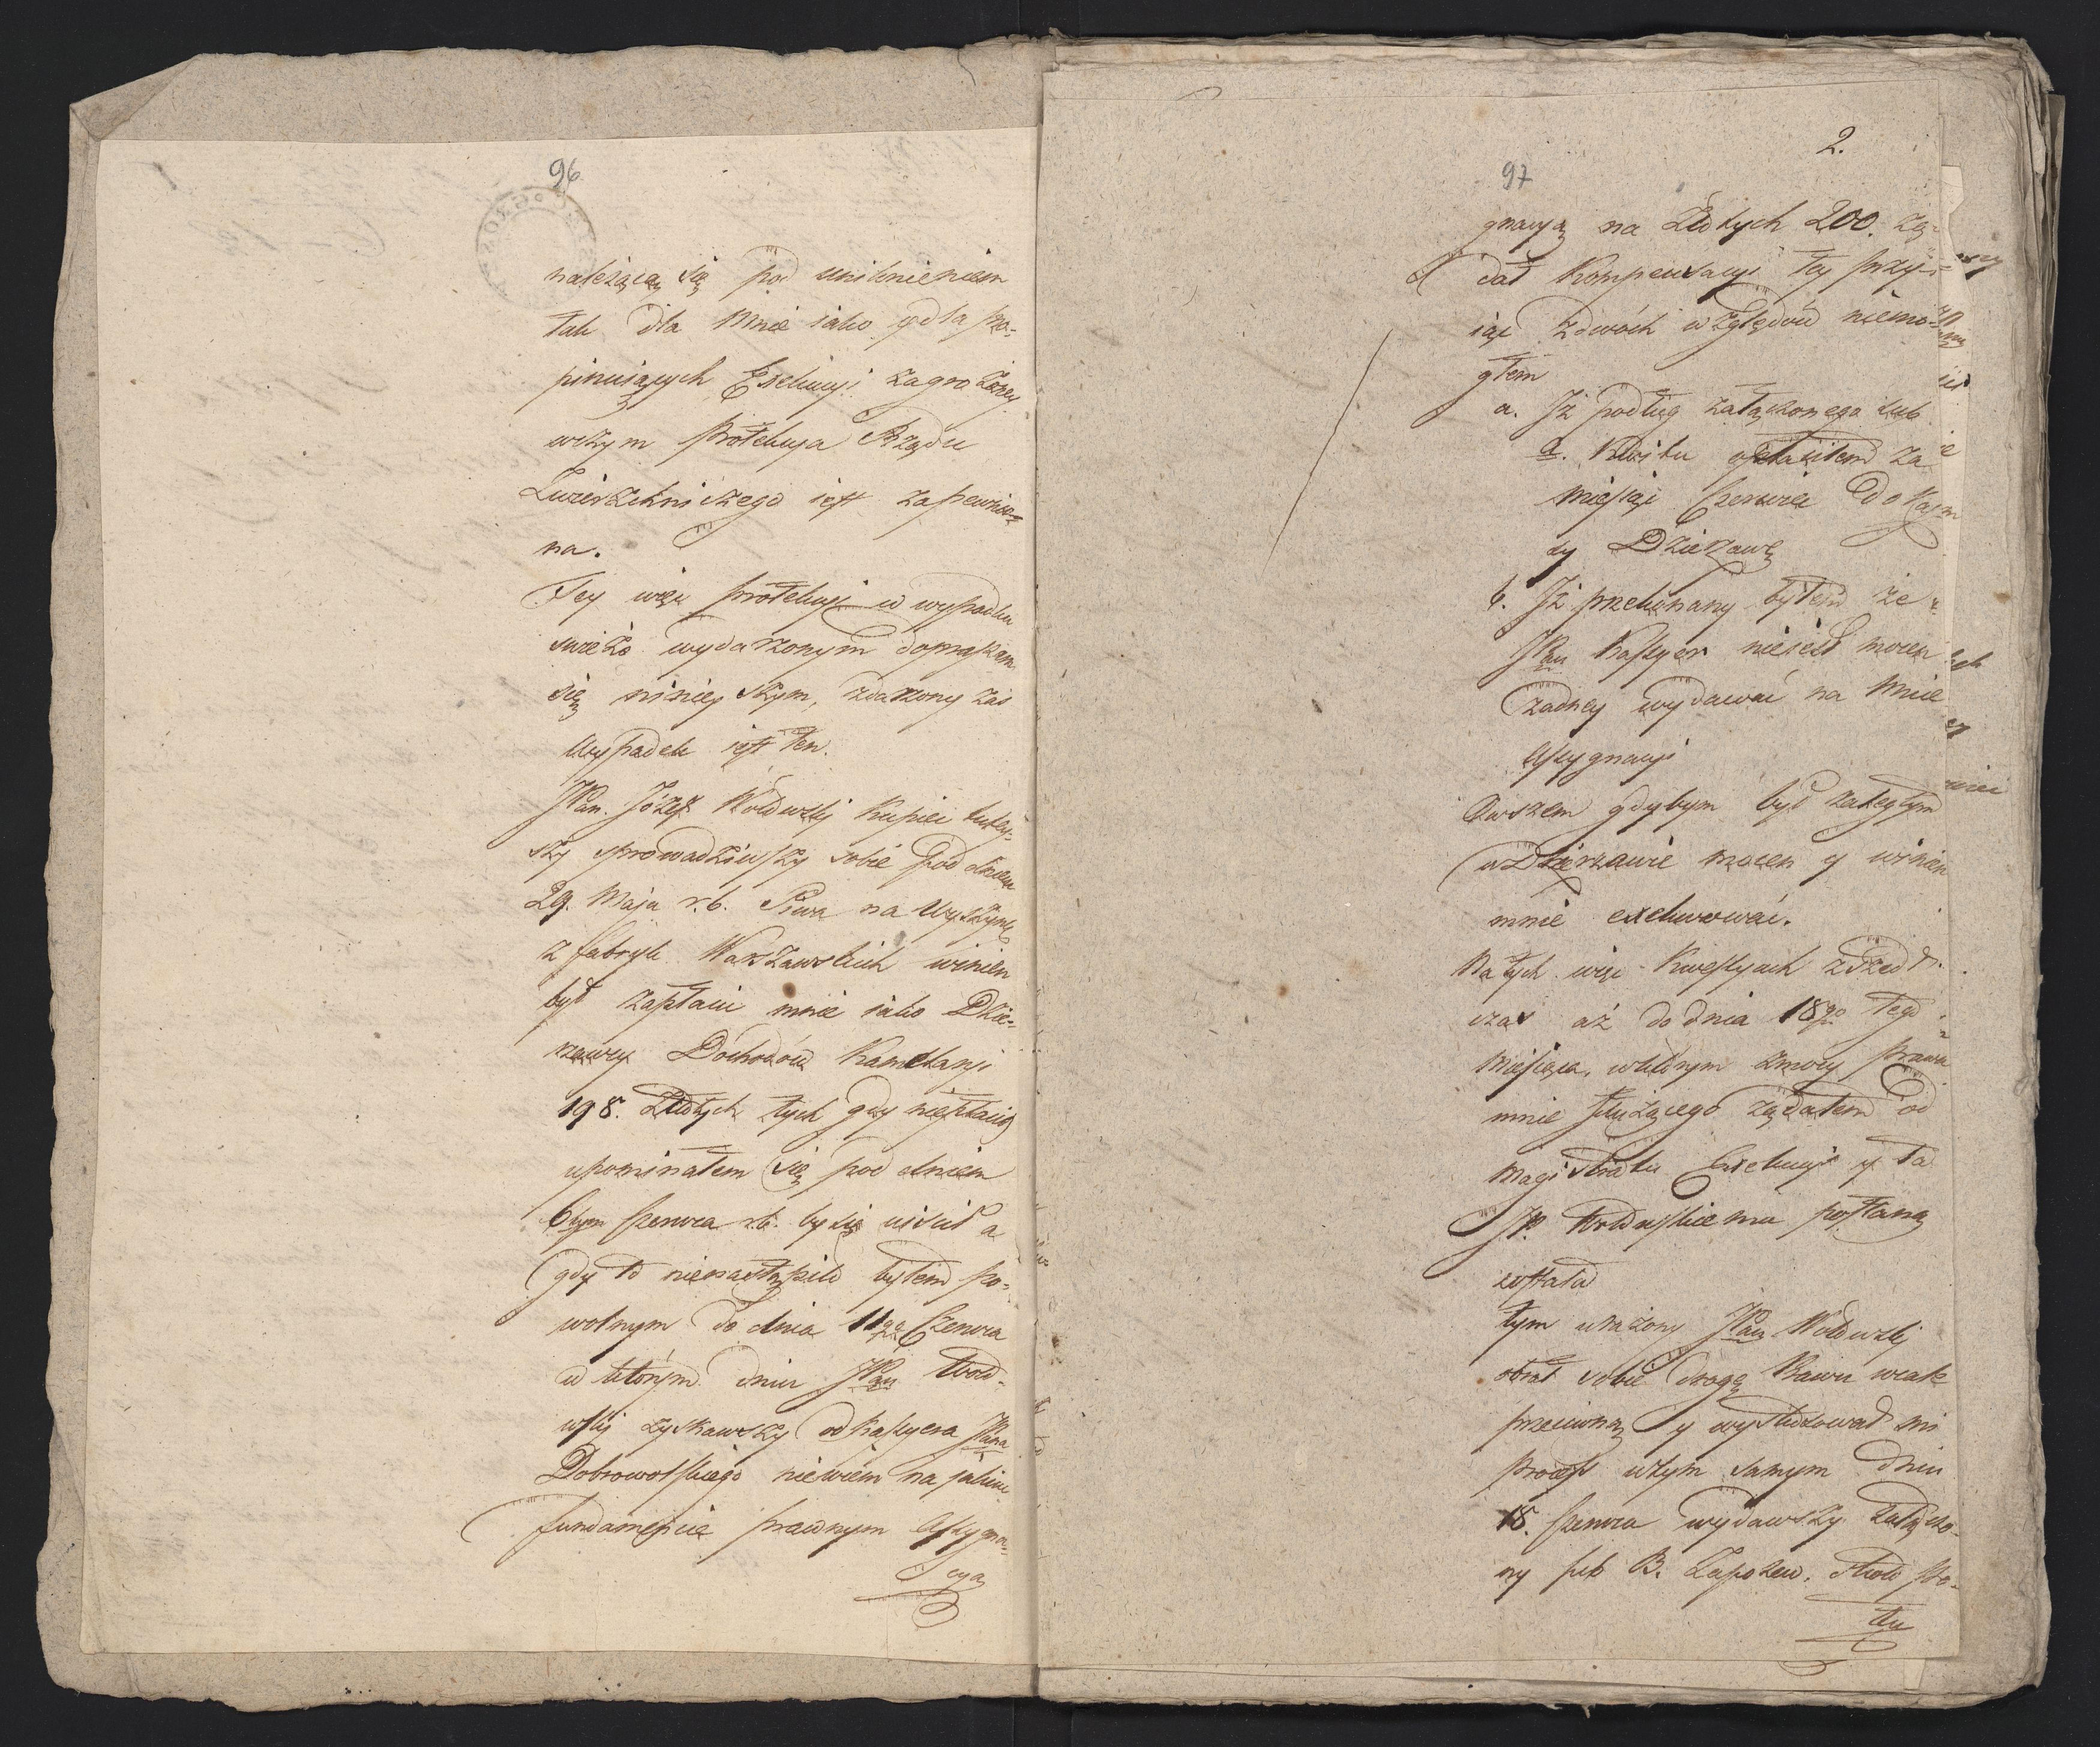 96
należącą się pod uniknieniem
tak dla Mnie iako y dla pro-
pinuiących Exekucyi zagrożoney
wszym Protekcya Rządu
Zwierzchniczego iest zapewnio-
na.
Tey więc protekcyi w wypadku
swieżo wydarzonym dopraszam
się ninieyszym, zdarzony zaś
Wypadek iest ten.
JPan. Józef Wołowski Kupiec tutey-
szy sprowadziwszy sobie pod dniem
29. Maja r.b. Piwa na Wyszynk
z fabryk Warszawskich winien
był zapłacić mnie iako Dzie-
rzawcy Dochodów Konsumpcyi
198. Złotych tych gdy niepłacił
upominałem się pod dniem
6tym Czerwca rb. by się uiścił a
gdy to nienastąpiło byłem po-
wolnym do dnia 11go Czerwca
w którym dniu JPan Woło-
wski zyskawszy od Kassyera JPana
Dobrowolskiego niewiem na jakim
fundamencie prawnym Assygna-
cyą
2.
97
gnacyą na Złotych 200. żą-
dał Kompensacyi tey przy-
iąć zdwóch względów niemo-
głem
a. Iż podług załączonego sub
a. Kwitu opłaciłem za
Miesiąc Czerwiec do Kas-
sy Dzierzawę
b. Iż przekonany byłem że
JPan Kassyer nieiest mocen
żadney wydawać na Mnie
Assygnacyi
Owszem gdybym był zaległym
w Dzierzawie mocen y winien
mnie exekwować.
Na tych więc Kwestyach zszedł
czas aż do dnia 18go tego
Miesiąca, wktórym zmocy Prawa
mnie służącego żądałem od
Magistratu Exekucyi y ta
JP. Wołowskiemu posłaną
została
tym urażony JPan Wołowski
obrał sobie drogę Prawu wcale
przeciwną y wystosował mi
Process wtym samym dniu
18. Czerwca wydawszy załączo-
ny sub B. Zapozew. Stoso
tu